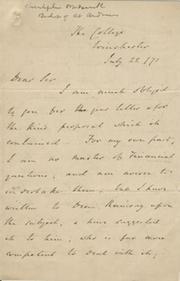 The College
Winchester
July 22 /71
Dear Sir
I am much obliged
to you for the your letter & for
the kind proposal which it
contained. For my own part,
I am no master of Financial
questions, and am averse to
undertake them, but I have
written to Dean Ramsay upon
the subject, & have suggested
it to him, who is far more
competent to deal with it,